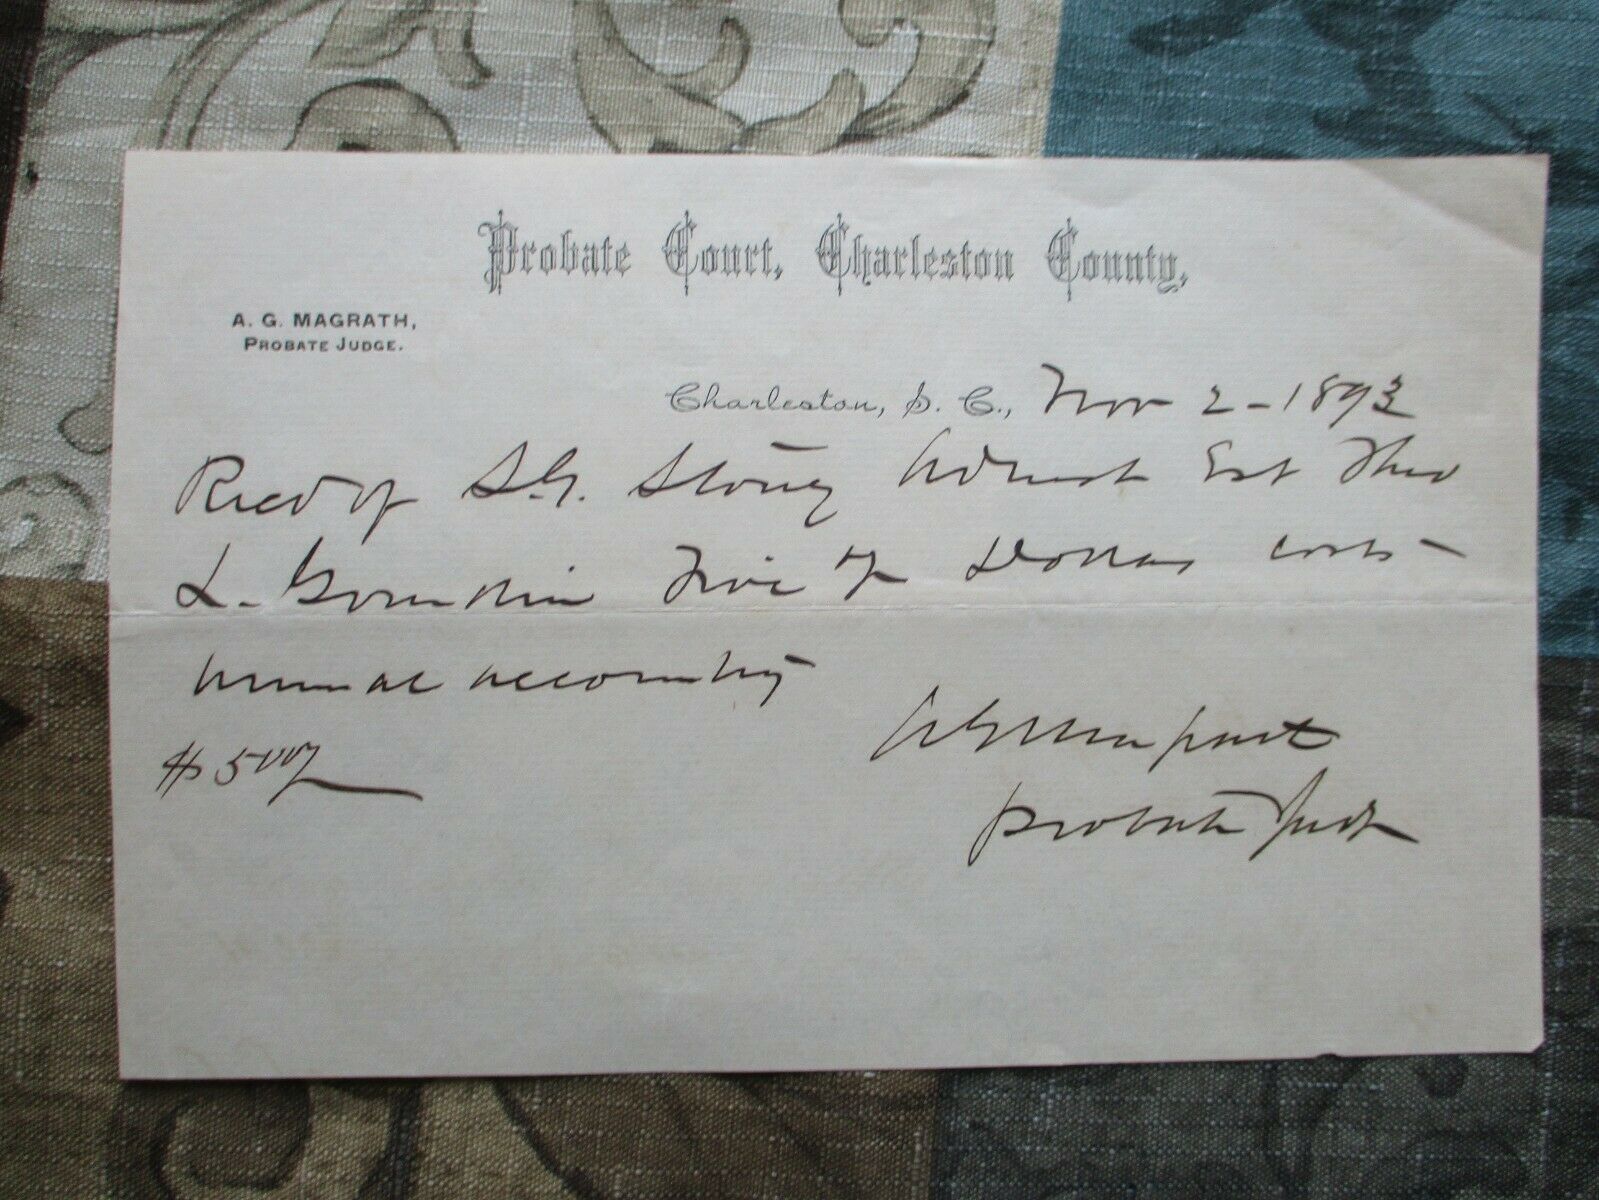 Probate Court, Charleston County,
A. G. MAGRATH,
PROBATE JUDGE.
Charleston, S. C., Nov 2 - 1893
Recd of S. G. Stoney Admst Est Theo
L. Gourdin Five Dollars costs -
annual accounting
$ 5 00/
A G Magrath
Probate Judge